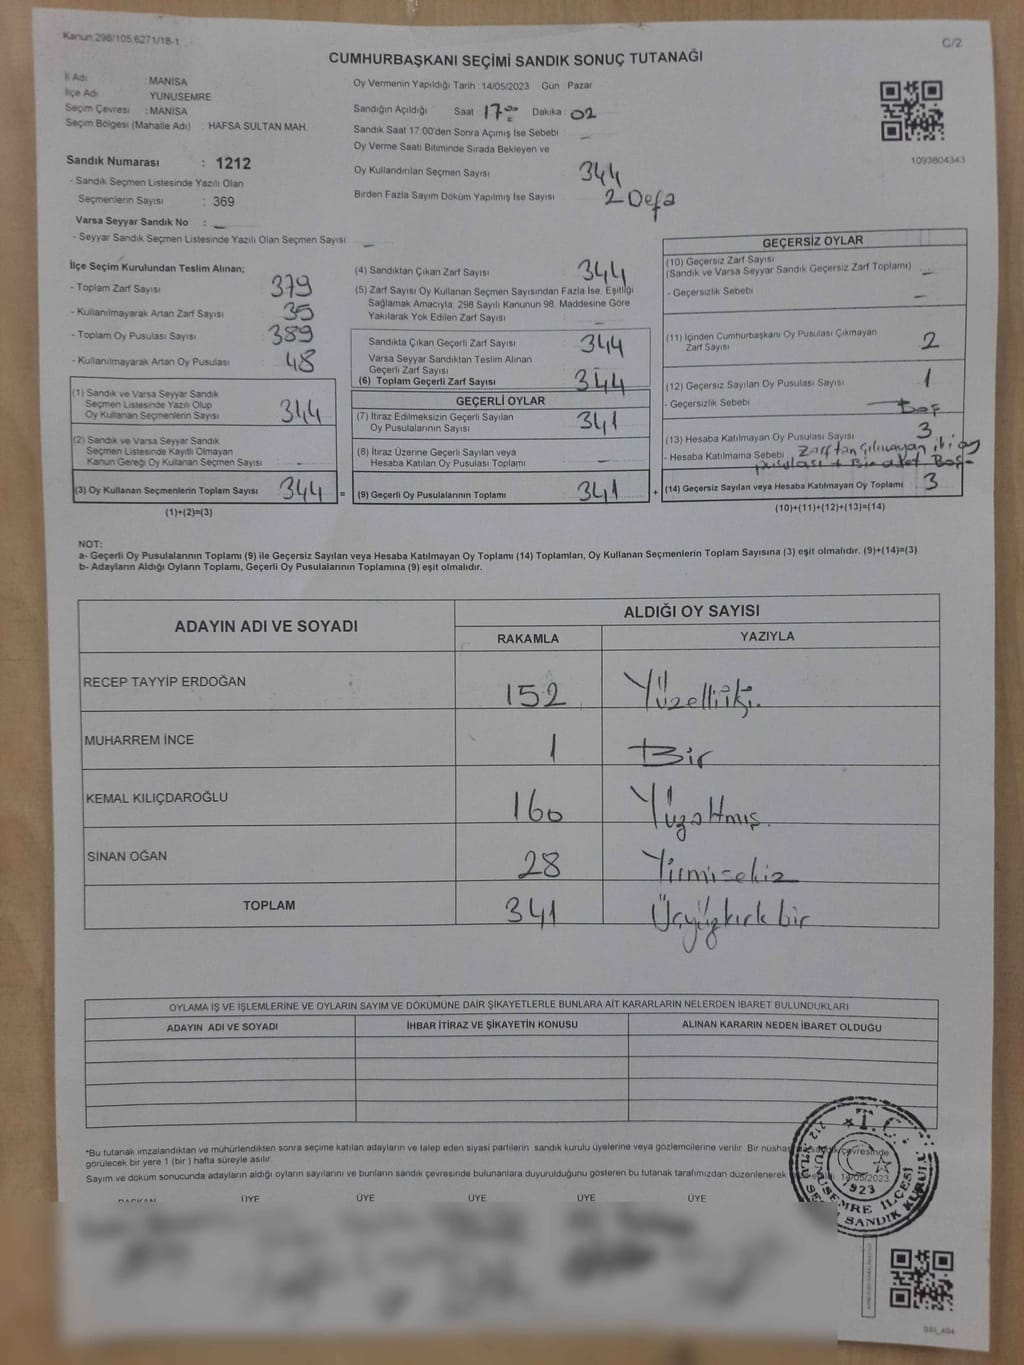 Kanun 298/105,6271/18-1
C/2
CUMHURBAŞKANI SEÇİMİ SANDIK SONUÇ TUTANAĞI
İl Adı MANİSA
İlçe Adı YUNUSEMRE
Seçim Çevresi : MANİSA
Seçim Bölgesi (Mahalle Adı) : HAFSA SULTAN MAH.
Sandık Numarası : 1212
- Sandık Seçmen Listesinde Yazılı Olan
Seçmenlerin Sayısı : 369
Varsa Seyyar Sandık No : -
- Seyyar Sandık Seçmen Listesinde Yazılı Olan Seçmen Sayısı -
Oy Vermenin Yapıldığı Tarih : 14/05/2023 Gün Pazar
Sandığın Açıldığı Saat 17:00 Dakika 02
Sandık Saat 17:00'den Sonra Açımış İse Sebebi -
Oy Verme Saati Bitiminde Sırada Bekleyen ve
Oy Kullandırılan Seçmen Sayısı 344
Birden Fazla Sayım Döküm Yapılmış İse Sayısı 2 Defa
1093804343
İlçe Seçim Kurulundan Teslim Alınan;
- Toplam Zarf Sayısı 379
- Kullanılmayarak Artan Zarf Sayısı 35
- Toplam Oy Pusulası Sayısı 389
- Kullanılmayarak Artan Oy Pusulası 48
(1) Sandık ve Varsa Seyyar Sandık
Seçmen Listesinde Yazılı Olup
Oy Kullanan Seçmenlerin Sayısı 344
(2) Sandık ve Varsa Seyyar Sandık
Seçmen Listesinde Kayıtlı Olmayan
Kanun Gereği Oy Kullanan Seçmen Sayısı -
(3) Oy Kullanan Seçmenlerin Toplam Sayısı 344 =
(1)+(2)=(3)
(4) Sandıktan Çıkan Zarf Sayısı 344
(5) Zarf Sayısı Oy Kullanan Seçmen Sayısından Fazla İse, Eşitliği
Sağlamak Amacıyla; 298 Sayılı Kanunun 98. Maddesine Göre
Yakılarak Yok Edilen Zarf Sayısı -
Sandıkta Çıkan Geçerli Zarf Sayısı 344
Varsa Seyyar Sandıktan Teslim Alınan
Geçerli Zarf Sayısı
(6) Toplam Geçerli Zarf Sayısı 344
GEÇERLİ OYLAR
(7) İtiraz Edilmeksizin Geçerli Sayılan
Oy Pusulalarının Sayısı 341
(8) İtiraz Üzerine Geçerli Sayılan veya
Hesaba Katılan Oy Pusulası Toplamı -
(9) Geçerli Oy Pusulalarının Toplamı 341 +
GEÇERSİZ OYLAR
(10) Geçersiz Zarf Sayısı
(Sandık ve Varsa Seyyar Sandık Geçersiz Zarf Toplamı) -
- Geçersizlik Sebebi -
(11) İçinden Cumhurbaşkanı Oy Pusulası Çıkmayan
Zarf Sayısı 2
(12) Geçersiz Sayılan Oy Pusulası Sayısı 1
- Geçersizlik Sebebi Boş
(13) Hesaba Katılmayan Oy Pusulası Sayısı 3
- Hesaba Katılmama Sebebi Zarftan Çılmayan iki oy
pusulası + Bir adet Boş
(14) Geçersiz Sayılan veya Hesaba Katılmayan Oy Toplamı 3
(10)+(11)+(12)+(13)=(14)
NOT:
a- Geçerli Oy Pusulalarının Toplamı (9) ile Geçersiz Sayılan veya Hesaba Katılmayan Oy Toplamı (14) Toplamları, Oy Kullanan Seçmenlerin Toplam Sayısına (3) eşit olmalıdır. (9)+(14)=(3)
b- Adayların Aldığı Oyların Toplamı, Geçerli Oy Pusulalarının Toplamına (9) eşit olmalıdır.
ADAYIN ADI VE SOYADI ALDIĞI OY SAYISI
RAKAMLA YAZIYLA
RECEP TAYYİP ERDOĞAN 152 Yüzelliiki.
MUHARREM İNCE 1 Bir
KEMAL KILIÇDAROĞLU 160 Yüzaltmış.
SİNAN OĞAN 28 Yirmisekiz
TOPLAM 341 Üçyüzkırk bir
OYLAMA İŞ VE İŞLEMLERİNE VE OYLARIN SAYIM VE DÖKÜMÜNE DAİR ŞİKAYETLERLE BUNLARA AİT KARARLARIN NELERDEN İBARET BULUNDUKLARI
ADAYIN ADI VE SOYADI İHBAR İTİRAZ VE ŞİKAYETİN KONUSU ALINAN KARARIN NEDEN İBARET OLDUĞU
*Bu tutanak imzalandıktan ve mühürlendikten sonra seçime katılan adayların ve talep eden siyasi partilerin sandık kurulu üyelerine veya gözlemcilerine verilir. Bir nüshası çevresinde
görülecek bir yere 1 (bir) hafta süreyle asılır.
Sayım ve döküm sonucunda adayların aldığı oyların sayılarını ve bunların sandık çevresinde bulunanlara duyurulduğunu gösteren bu tutanak tarafımızdan düzenlenerek 14/05/2023
BAŞKAN ÜYE ÜYE ÜYE ÜYE ÜYE
T.C.
YUNUSEMRE İLÇESİ
1923
SANDIK KURULU